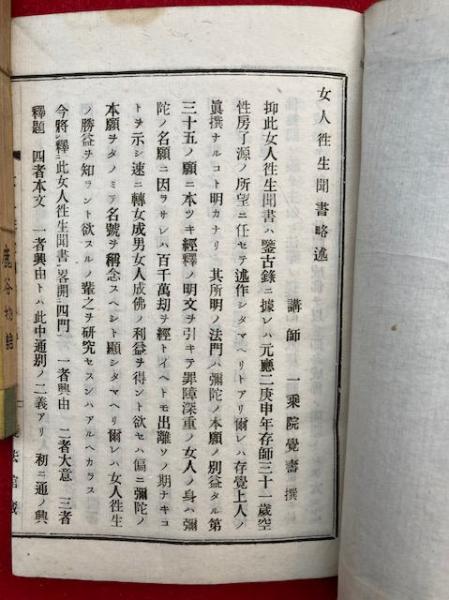 女人徃生聞書略述
講師 一乘院覺壽撰
抑此女人徃生聞書ハ鑒古錄ニ據レハ元應二庚申年存師三十一歲空
性房了源ノ所望ニ任セテ述作シタマヘリトアリ爾レハ存覺上人ノ
眞撰ナルコト明カナリ 其所明ノ法門ハ彌陀ノ本願ノ別益タル第
三十五ノ願ニ本ツキ經釋ノ明文ヲ引キテ罪障深重ノ女人ノ身ハ彌
陀ノ名願ニ因ラサレハ百千萬劫ヲ經トイヘトモ出離ソノ期ナキコ
トヲ示シ速ニ轉女成男女人成佛ノ利益ヲ得ント欲セハ偏ニ彌陀ノ
本願ヲタノミテ名號ヲ稱念スヘシト顯シタマヘリ爾レハ女人徃生
ノ勝益ヲ知ラント欲スルノ輩之ヲ研究セスンハアルヘカラス
今將ニ釋ニ此女人徃生聞書畧開ニ四門 一者興由 二者大意 三者
釋題 四者本文 一者興由トハ此中通別ノ二義アリ ノ初ニ通ノ興